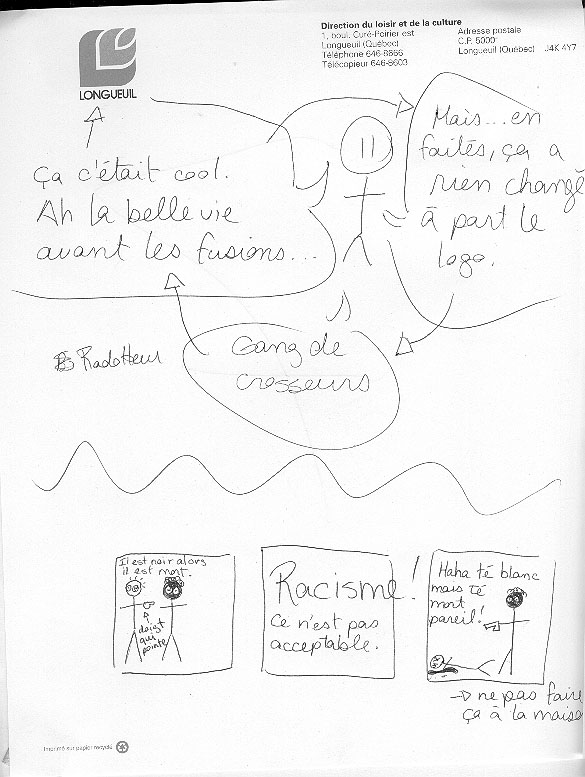 LONGUEUIL
Direction du loisir et de la culture
1, boul. Curé-Poirier est
Longueuil (Québec)
Téléphone 646-8666
Télécopieur 646-8603
Adresse postale
C.P. 5000
Longueuil (Québec) J4K 4Y7
Ça c'était cool.
Ah la belle vie
avant les fusions...
Mais...en
faites, ça a
rien changé
à part le
logo.
Radotteur
Gang de
crosseurs
Il est noir alors
il est mort.
doigt
qui
pointe
Racisme!
Ce n'est pas
acceptable.
Haha té blanc
mais té
mort
pareil!
→ ne pas faire
ça à la maiso
Imprimé sur papier recyclé